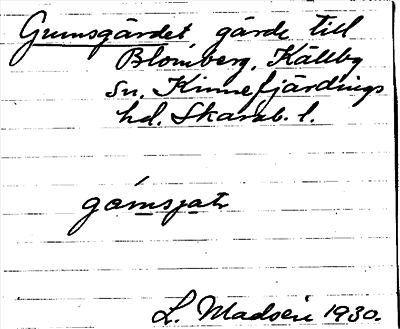 Gumsgärdet gärde till
Blomberg, Källby
sn. Kinnefjärdings
hd. Skarab. l.
L. Madsén 1930.